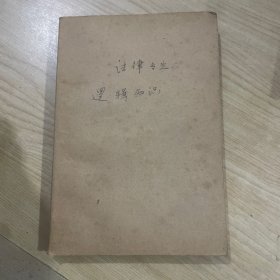 法律专业
逻辑知识